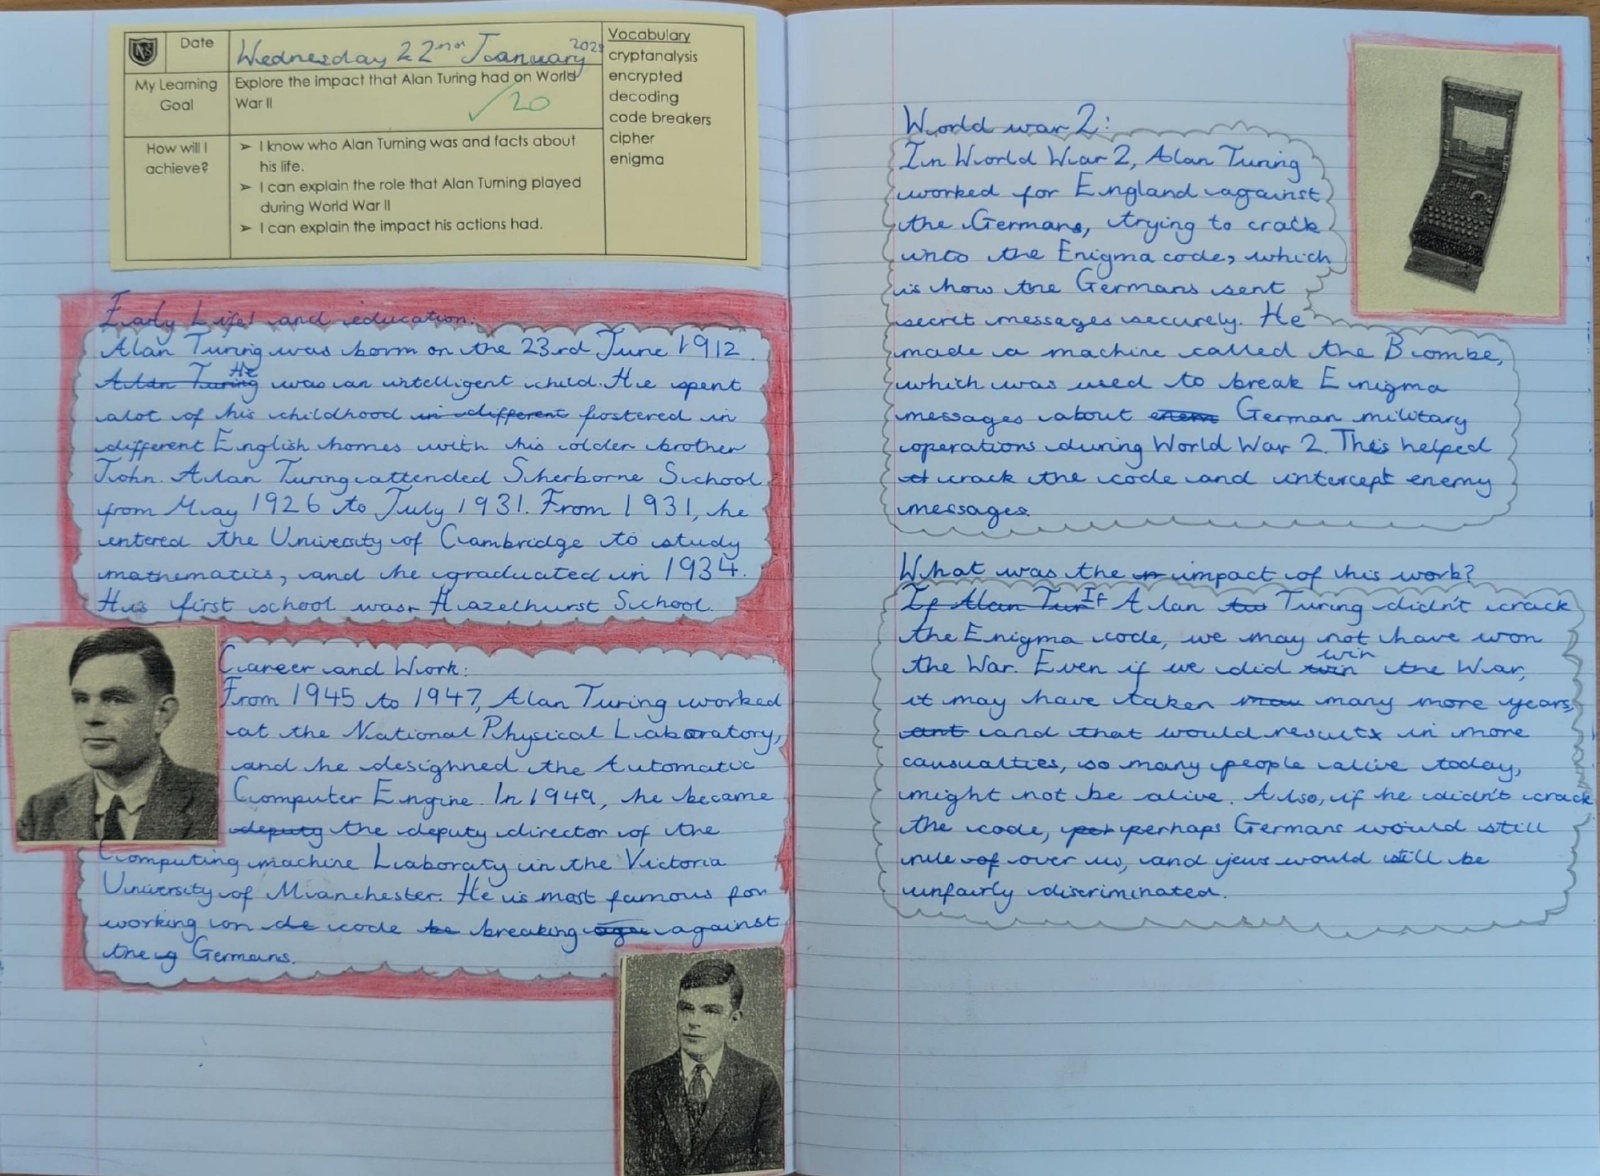 Date
Wednesday 22nd January
My Learning Goal
Explore the impact that Alan Turing had on World War II
20
How will I achieve?
➢ I know who Alan Turning was and facts about
his life.
➢ I can explain the role that Alan Turning played
during World War II
➢ I can explain the impact his actions had.
Vocabulary
cryptanalysis
encrypted
decoding
code breakers
cipher
enigma
Early Life and education.
Alan Turing was born on the 23rd June 1912.
Alan Turing He was an intelligent child. He spent
alot of his childhood in different fostered in
different English homes with his older brother
John. Alan Turing attended Sherborne School
from May 1926 to July 1931. From 1931, he
entered the University of Cambridge to study
mathematics, and he graduated in 1934.
His first school was Hazelhurst School.
Career and Work:
From 1945 to 1947, Alan Turing worked
at the National Physical Laboratory,
and he desighned the Automatic
Computer Engine. In 1949, he became
deputy the deputy director of the
Computing machine Laboraty in the Victoria
University of Manchester. He is most famous for
working on de code be breaking against
the Germans.
World war 2:
In World War 2, Alan Turing
worked for England against
the Germans, trying to crack
into the Enigma code, which
is how the Germans sent
secrit messages securely. He
made a machine called the Bombe,
which was used to break Enigma
messages about enem German military
operations during World War 2. This helped
crack the code and intercept enemy
messages.
What was the impact of his work?
If Alan Tur If Alan Turing didn't crack
the Enigma code, we may not have won
the War. Even if we did win win the War,
it may have taken many more years,
and that would results in more
causualties, so many people alive today,
might not be alive. Also, if he didn't crack
the code, per perhaps Germans would still
rule of over us, and jews would still be
unfairly discriminated.